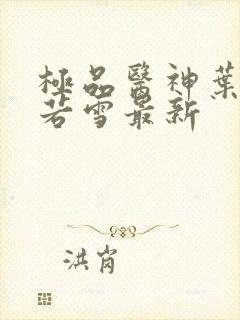 極品醫神葉
若雪最新
洪肖